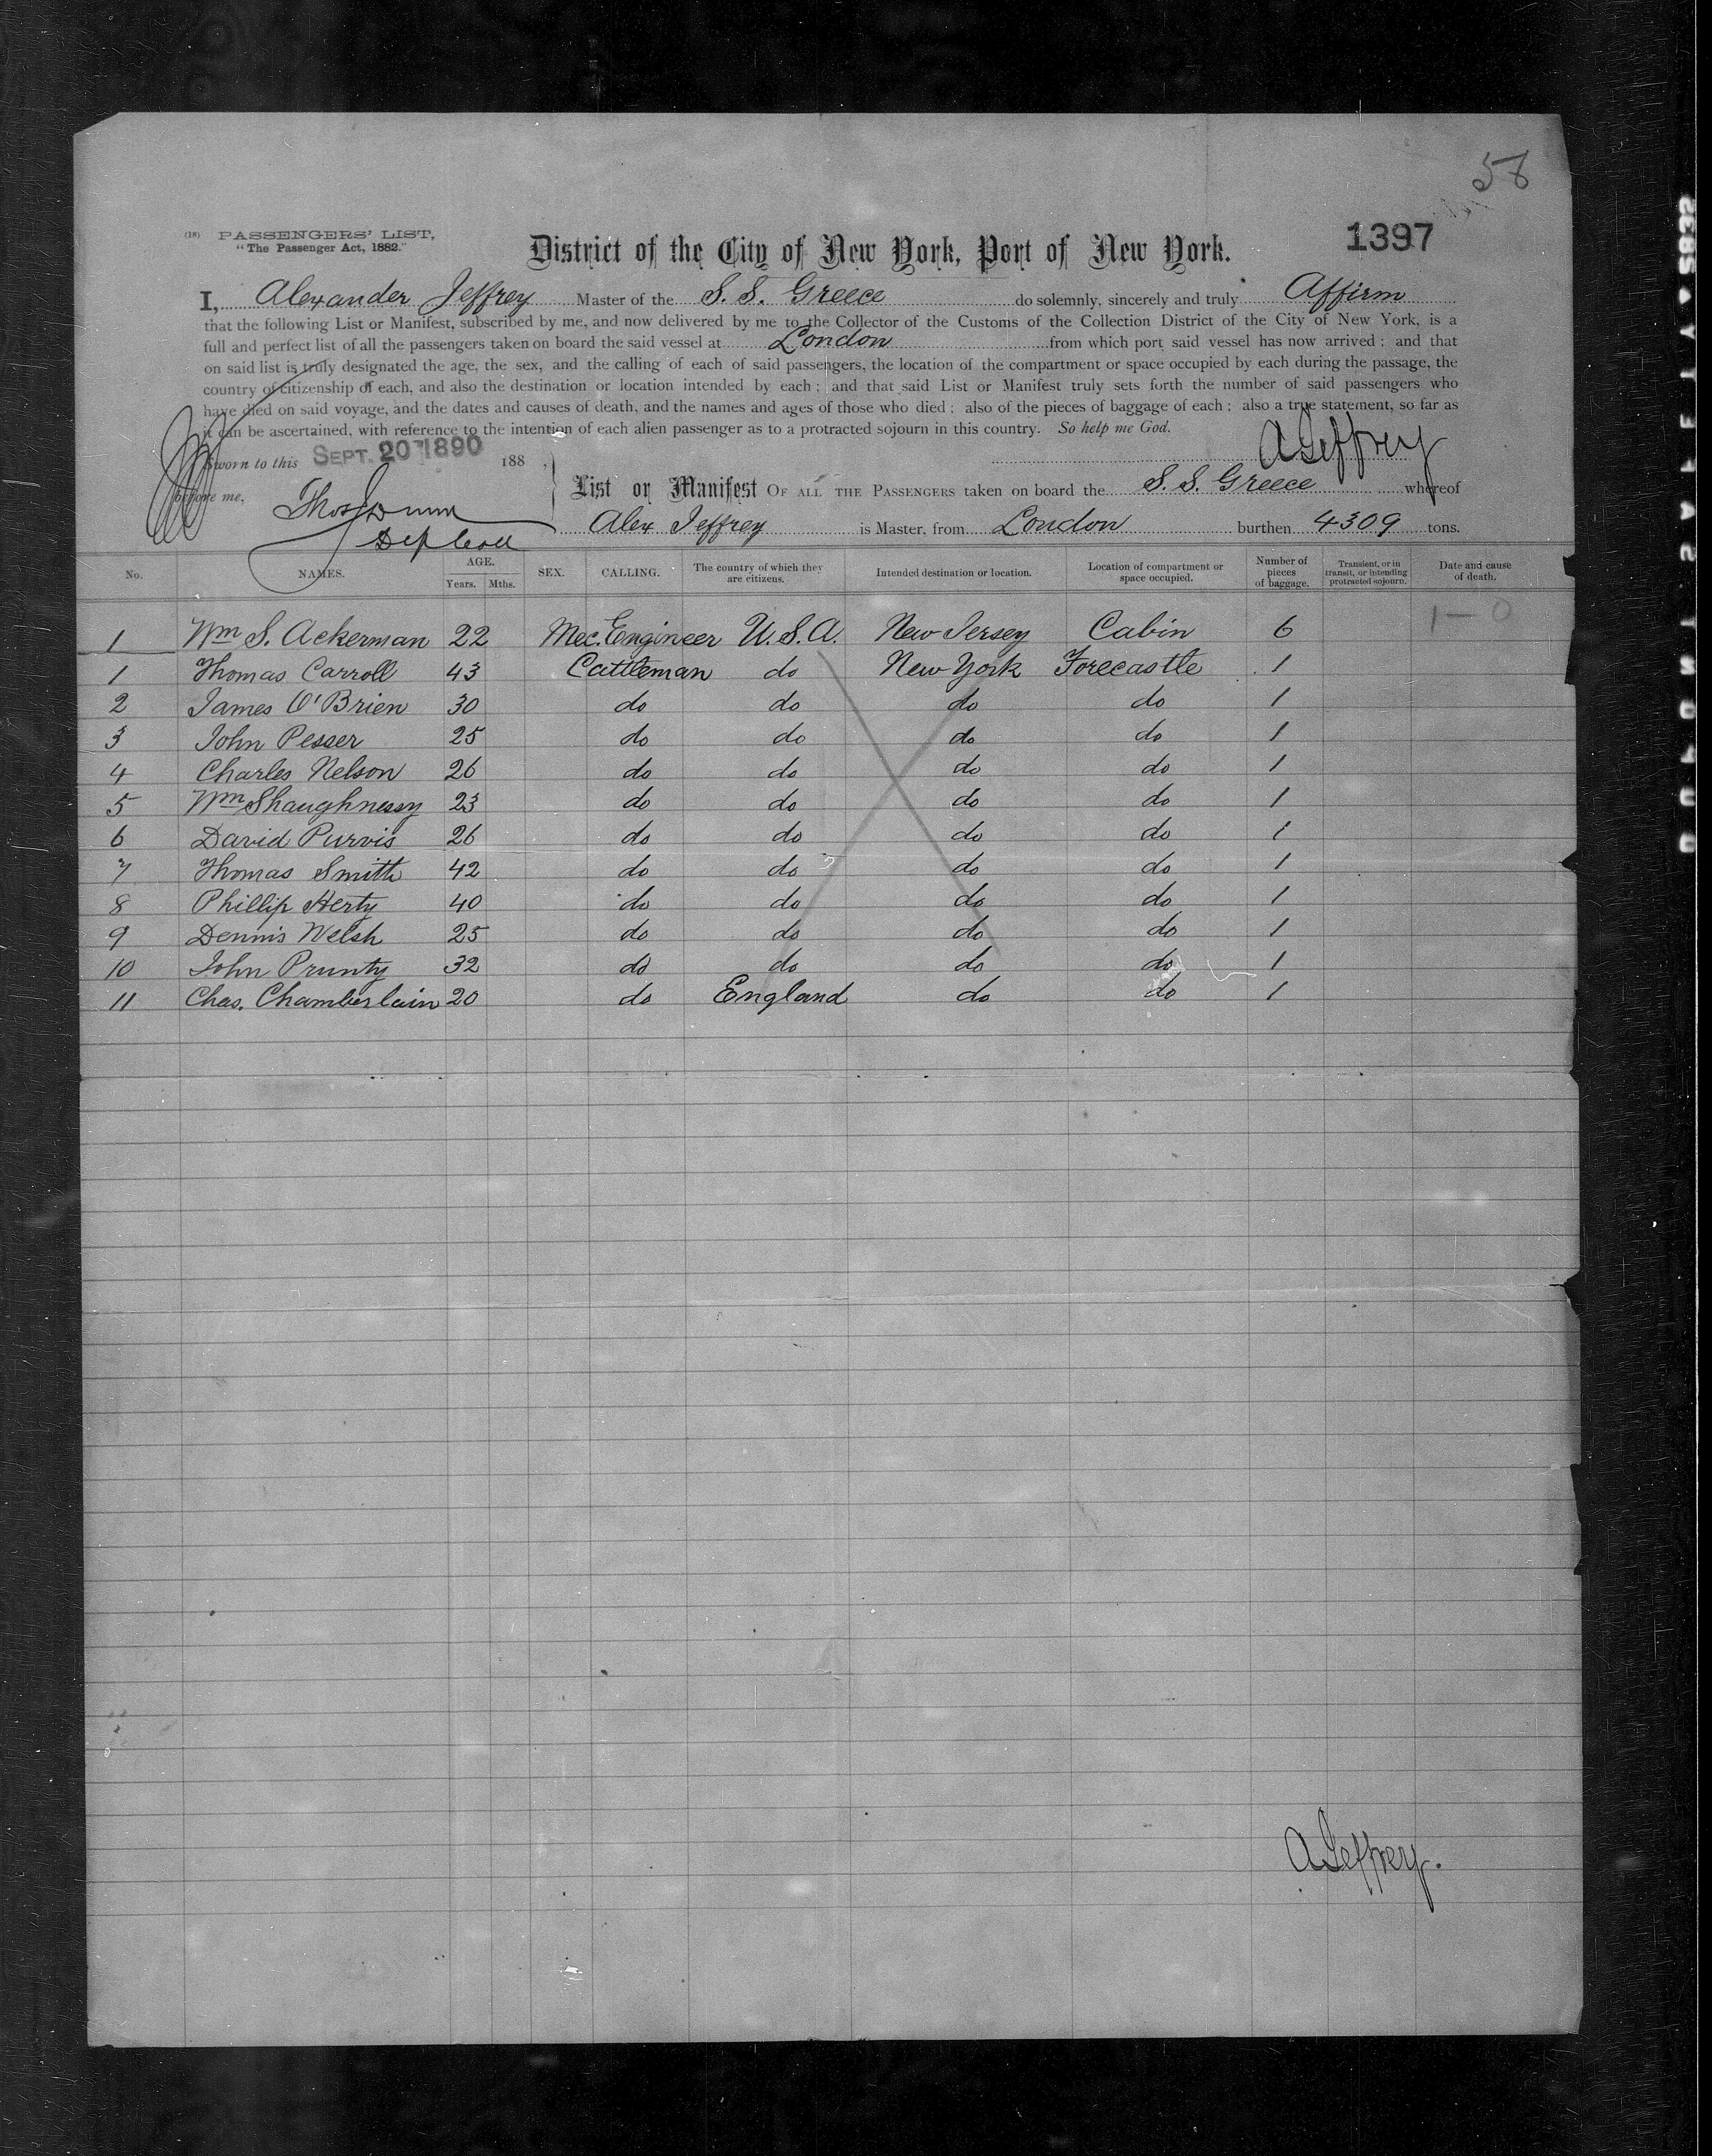 58
(18) PASSENGERS' LIST,
"The Passenger Act, 1882."
District of the City of New York, Port of New York.
1397
I, Alexander Jeffrey Master of the S. S. Greece do solemnly, sincerely and truly Affirm
that the following List or Manifest, subscribed by me, and now delivered by me to the Collector of the Customs of the Collection District of the City of New York, is a
full and perfect list of all the passengers taken on board the said vessel at London from which port said vessel has now arrived; and that
on said list is truly designated the age, the sex, and the calling of each of said passengers, the location of the compartment or space occupied by each during the passage, the
country of citizenship of each, and also the destination or location intended by each; and that said List or Manifest truly sets forth the number of said passengers who
have died on said voyage, and the dates and causes of death, and the names and ages of those who died; also of the pieces of baggage of each; also a true statement, so far as
it can be ascertained, with reference to the intention of each alien passenger as to a protracted sojourn in this country. So help me God.
Sworn to this SEPT. 20 1890 188 , A Jeffrey
before me, Thos Dunn
Dep Coll
List or Manifest OF ALL THE PASSENGERS taken on board the S. S. Greece whereof
Alex Jeffrey is Master, from London burthen 4309 tons.
No. NAMES. AGE. Years. Mths. SEX. CALLING. The country of which they are citizens. Intended destination or location. Location of compartment or space occupied. Number of pieces of baggage. Transient, or in transit, or intending protracted sojourn. Date and cause of death.
1 Wm S. Ackerman 22 Mec. Engineer U.S.A. New Jersey Cabin 6 1-0
1 Thomas Carroll 43 Cattleman do New York Forecastle 1
2 James O'Brien 30 do do do do 1
3 John Pesser 25 do do do do 1
4 Charles Nelson 26 do do do do 1
5 Wm Shaughnessy 23 do do do do 1
6 David Purvis 26 do do do do 1
7 Thomas Smith 42 do do do do 1
8 Phillip Herty 40 do do do do 1
9 Dennis Welsh 25 do do do do 1
10 John Prunty 32 do do do do 1
11 Chas. Chamberlain 20 do England do do 1
A Jeffrey.